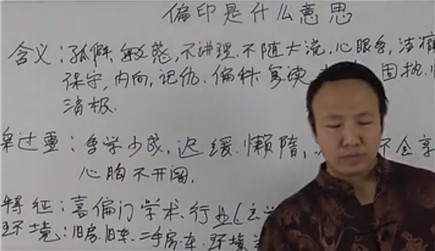 偏印是什么意思
含义：孤僻.敏感,不讲理.不随大流,心眼多,洁癖
保守,内向,记仇.偏科 复读 固执
消极.
过重：学少成,迟缓.懒惰,不会享
心胸不开阔.
特征：喜偏门学术.行业
环境：旧房.旧车.二手房.车.环境